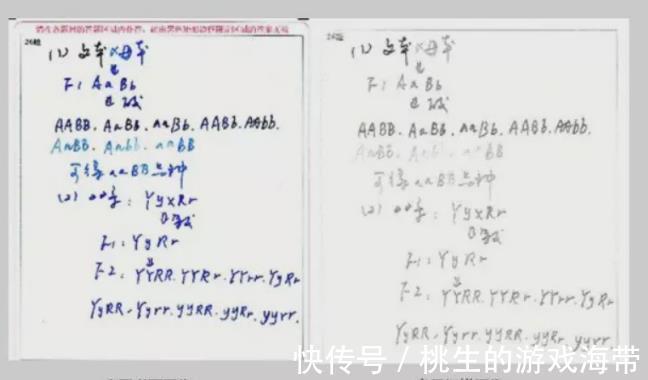 请在各题目的答题区域内作答，超出黑色矩形边框限定区域的答案无效
26题
(1) 父本×母本
↓
F1 AaBb
自交
AABB. AaBB. aaBb. AABb. AAbb.
AaBB. Aabb. aaBB
可得aaBB品种
(2) 四季: YyxRr
自交
F1: YyRr
↓
F2: YYRR. YYRr. YYrr. YyRr
YyRR. Yyrr. yyRR. yyRr. yyrr.
26题
(1) 父本×母本
↓
F1 AaBb
自交
AABB. AaBB. aaBb. AABb. AAbb.
AaBB. Aabb. aaBB
可得aaBB品种
(2) : YyxRr
自交
F1: YyRr
↓
F2: YYRR. YYRr. YYrr. YyRr
YyRR. Yyrr. yyRR. yyRr. yyrr
快传号 / 桃生的游戏海带